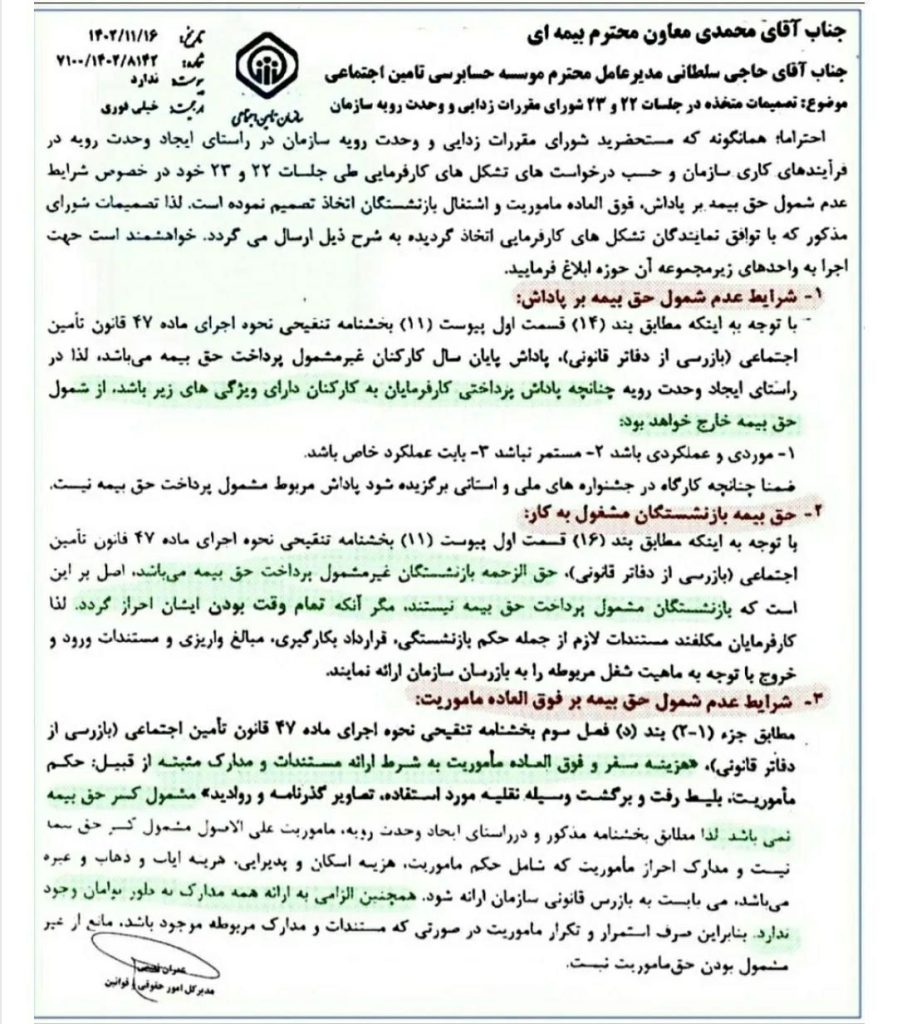 جناب آقای محمدی معاون محترم بیمه ای
تاریخ: ۱۴۰۲/۱۱/۱۶
شماره: ۷۱۰۰/۱۴۰۲/۸۱۴۲
پیوست: ندارد
ارجحیت: خیلی فوری
سازمان تامین اجتماعی
جناب آقای حاجی سلطانی مدیرعامل محترم موسسه حسابرسی تامین اجتماعی
موضوع: تصمیمات متخذه در جلسات ۲۲ و ۲۳ شورای مقررات زدایی و وحدت رویه سازمان
احتراما؛ همانگونه که مستحضرید شورای مقررات زدایی و وحدت رویه سازمان در راستای ایجاد وحدت رویه در
فرآیندهای کاری سازمان و حسب درخواست های تشکل های کارفرمایی طی جلسات ۲۲ و ۲۳ خود در خصوص شرایط
عدم شمول حق بیمه بر پاداش، فوق العاده ماموریت و اشتغال بازنشستگان اتخاذ تصمیم نموده است. لذا تصمیمات شورای
مذکور که با توافق نمایندگان تشکل های کارفرمایی اتخاذ گردیده به شرح ذیل ارسال می گردد. خواهشمند است جهت
اجرا به واحدهای زیرمجموعه آن حوزه ابلاغ فرمایید.
۱- شرایط عدم شمول حق بیمه بر پاداش:
با توجه به اینکه مطابق بند (۱۴) قسمت اول پیوست (۱۱) بخشنامه تنقیحی نحوه اجرای ماده ۴۷ قانون تأمین
اجتماعی (بازرسی از دفاتر قانونی)، پاداش پایان سال کارکنان غیرمشمول پرداخت حق بیمه می‌باشد، لذا در
راستای ایجاد وحدت رویه چنانچه پاداش پرداختی کارفرمایان به کارکنان دارای ویژگی های زیر باشد، از شمول
حق بیمه خارج خواهد بود:
۱- موردی و عملکردی باشد ۲- مستمر نباشد ۳- بابت عملکرد خاص باشد.
ضمنا چنانچه کارگاه در جشنواره های ملی و استانی برگزیده شود پاداش مربوط مشمول پرداخت حق بیمه نیست.
۲- حق بیمه بازنشستگان مشغول به کار:
با توجه به اینکه مطابق بند (۱۶) قسمت اول پیوست (۱۱) بخشنامه تنقیحی نحوه اجرای ماده ۴۷ قانون تأمین
اجتماعی (بازرسی از دفاتر قانونی)، حق الزحمه بازنشستگان غیرمشمول پرداخت حق بیمه می‌باشد، اصل بر این
است که بازنشستگان مشمول پرداخت حق بیمه نیستند، مگر آنکه تمام وقت بودن ایشان احراز گردد. لذا
کارفرمایان مکلفند مستندات لازم از جمله حکم بازنشستگی، قرارداد بکارگیری، مبالغ واریزی و مستندات ورود و
خروج با توجه به ماهیت شغل مربوطه را به بازرسان سازمان ارائه نمایند.
۳- شرایط عدم شمول حق بیمه بر فوق العاده ماموریت:
مطابق جزء (۱-۲) بند (د) فصل سوم بخشنامه تنقیحی نحوه اجرای ماده ۴۷ قانون تأمین اجتماعی (بازرسی از
دفاتر قانونی)، «هزینه سفر و فوق العاده مأموریت به شرط ارائه مستندات و مدارک مثبته از قبیل: حکم
مأموریت، بلیط رفت و برگشت وسیله نقلیه مورد استفاده، تصاویر گذرنامه و روادید» مشمول کسر حق بیمه
نمی باشد. لذا مطابق بخشنامه مذکور و درراستای ایجاد وحدت رویه، ماموریت علی الاصول مشمول کسر حق بیمه
نیست و مدارک احراز مأموریت که شامل حکم ماموریت، هزینه اسکان و پذیرایی، هزینه ایاب و ذهاب و غیره
می‌باشد، می بایست به بازرس قانونی سازمان ارائه شود. همچنین الزامی به ارائه همه مدارک به طور توامان وجود
ندارد. بنابراین صرف استمرار و تکرار ماموریت در صورتی که مستندات و مدارک مربوطه موجود باشد، مانع از غیر
مشمول بودن حق‌ماموریت نیست.
عمران
مدیرکل امور حقوقی و قوانین